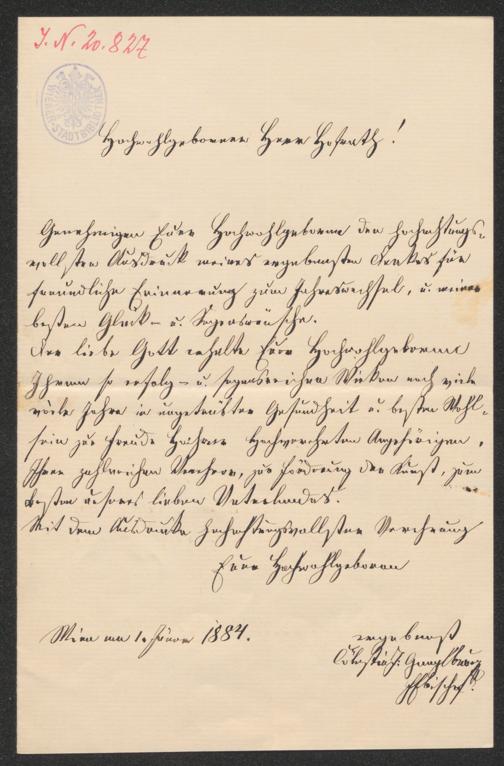 J. N. 20.827
WIENER STADTBIBLIOTHEK
Hochwohlgeborener Herr Hofrath!
Genehmigen Euer Hochwohlgeboren den hochachtungs-
vollsten Ausdruck meines ergebensten Dankes für
freundliche Erinnerung zum Jahreswechsel, u. meiner
besten Glück- u. Segenswünsche.
Der liebe Gott erhalte Euer Hochwohlgeboren
Ihrem so erfolg- u. segensreichen Wirken noch viele
viele Jahre in ungetrübter Gesundheit u. besten Wohl-
sein zur Freude Hochverehrten Angehörigen,
Ihrer zahlreichen Verehrer, zur Förderung der Kunst, zum
Besten unseres lieben Vaterlandes!
Mit dem Ausdrucke hochachtungsvollster Verehrung
Euer Hochwohlgeboren
Wien am 1. Jänner 1884.
ergebenst
Cölestin J. Ganglbauer